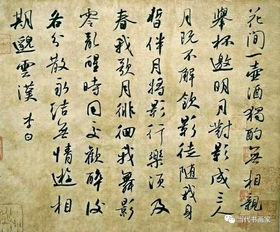 花間一壺酒獨酌無相親
舉杯邀明月對影成三人
月既不解飲影徒隨我身
暫伴月將影行樂須及
春我歌月徘徊我舞影
零亂醒時同交歡醉後
各分散永結無情遊相
期邈雲漢 李白
当代书画家